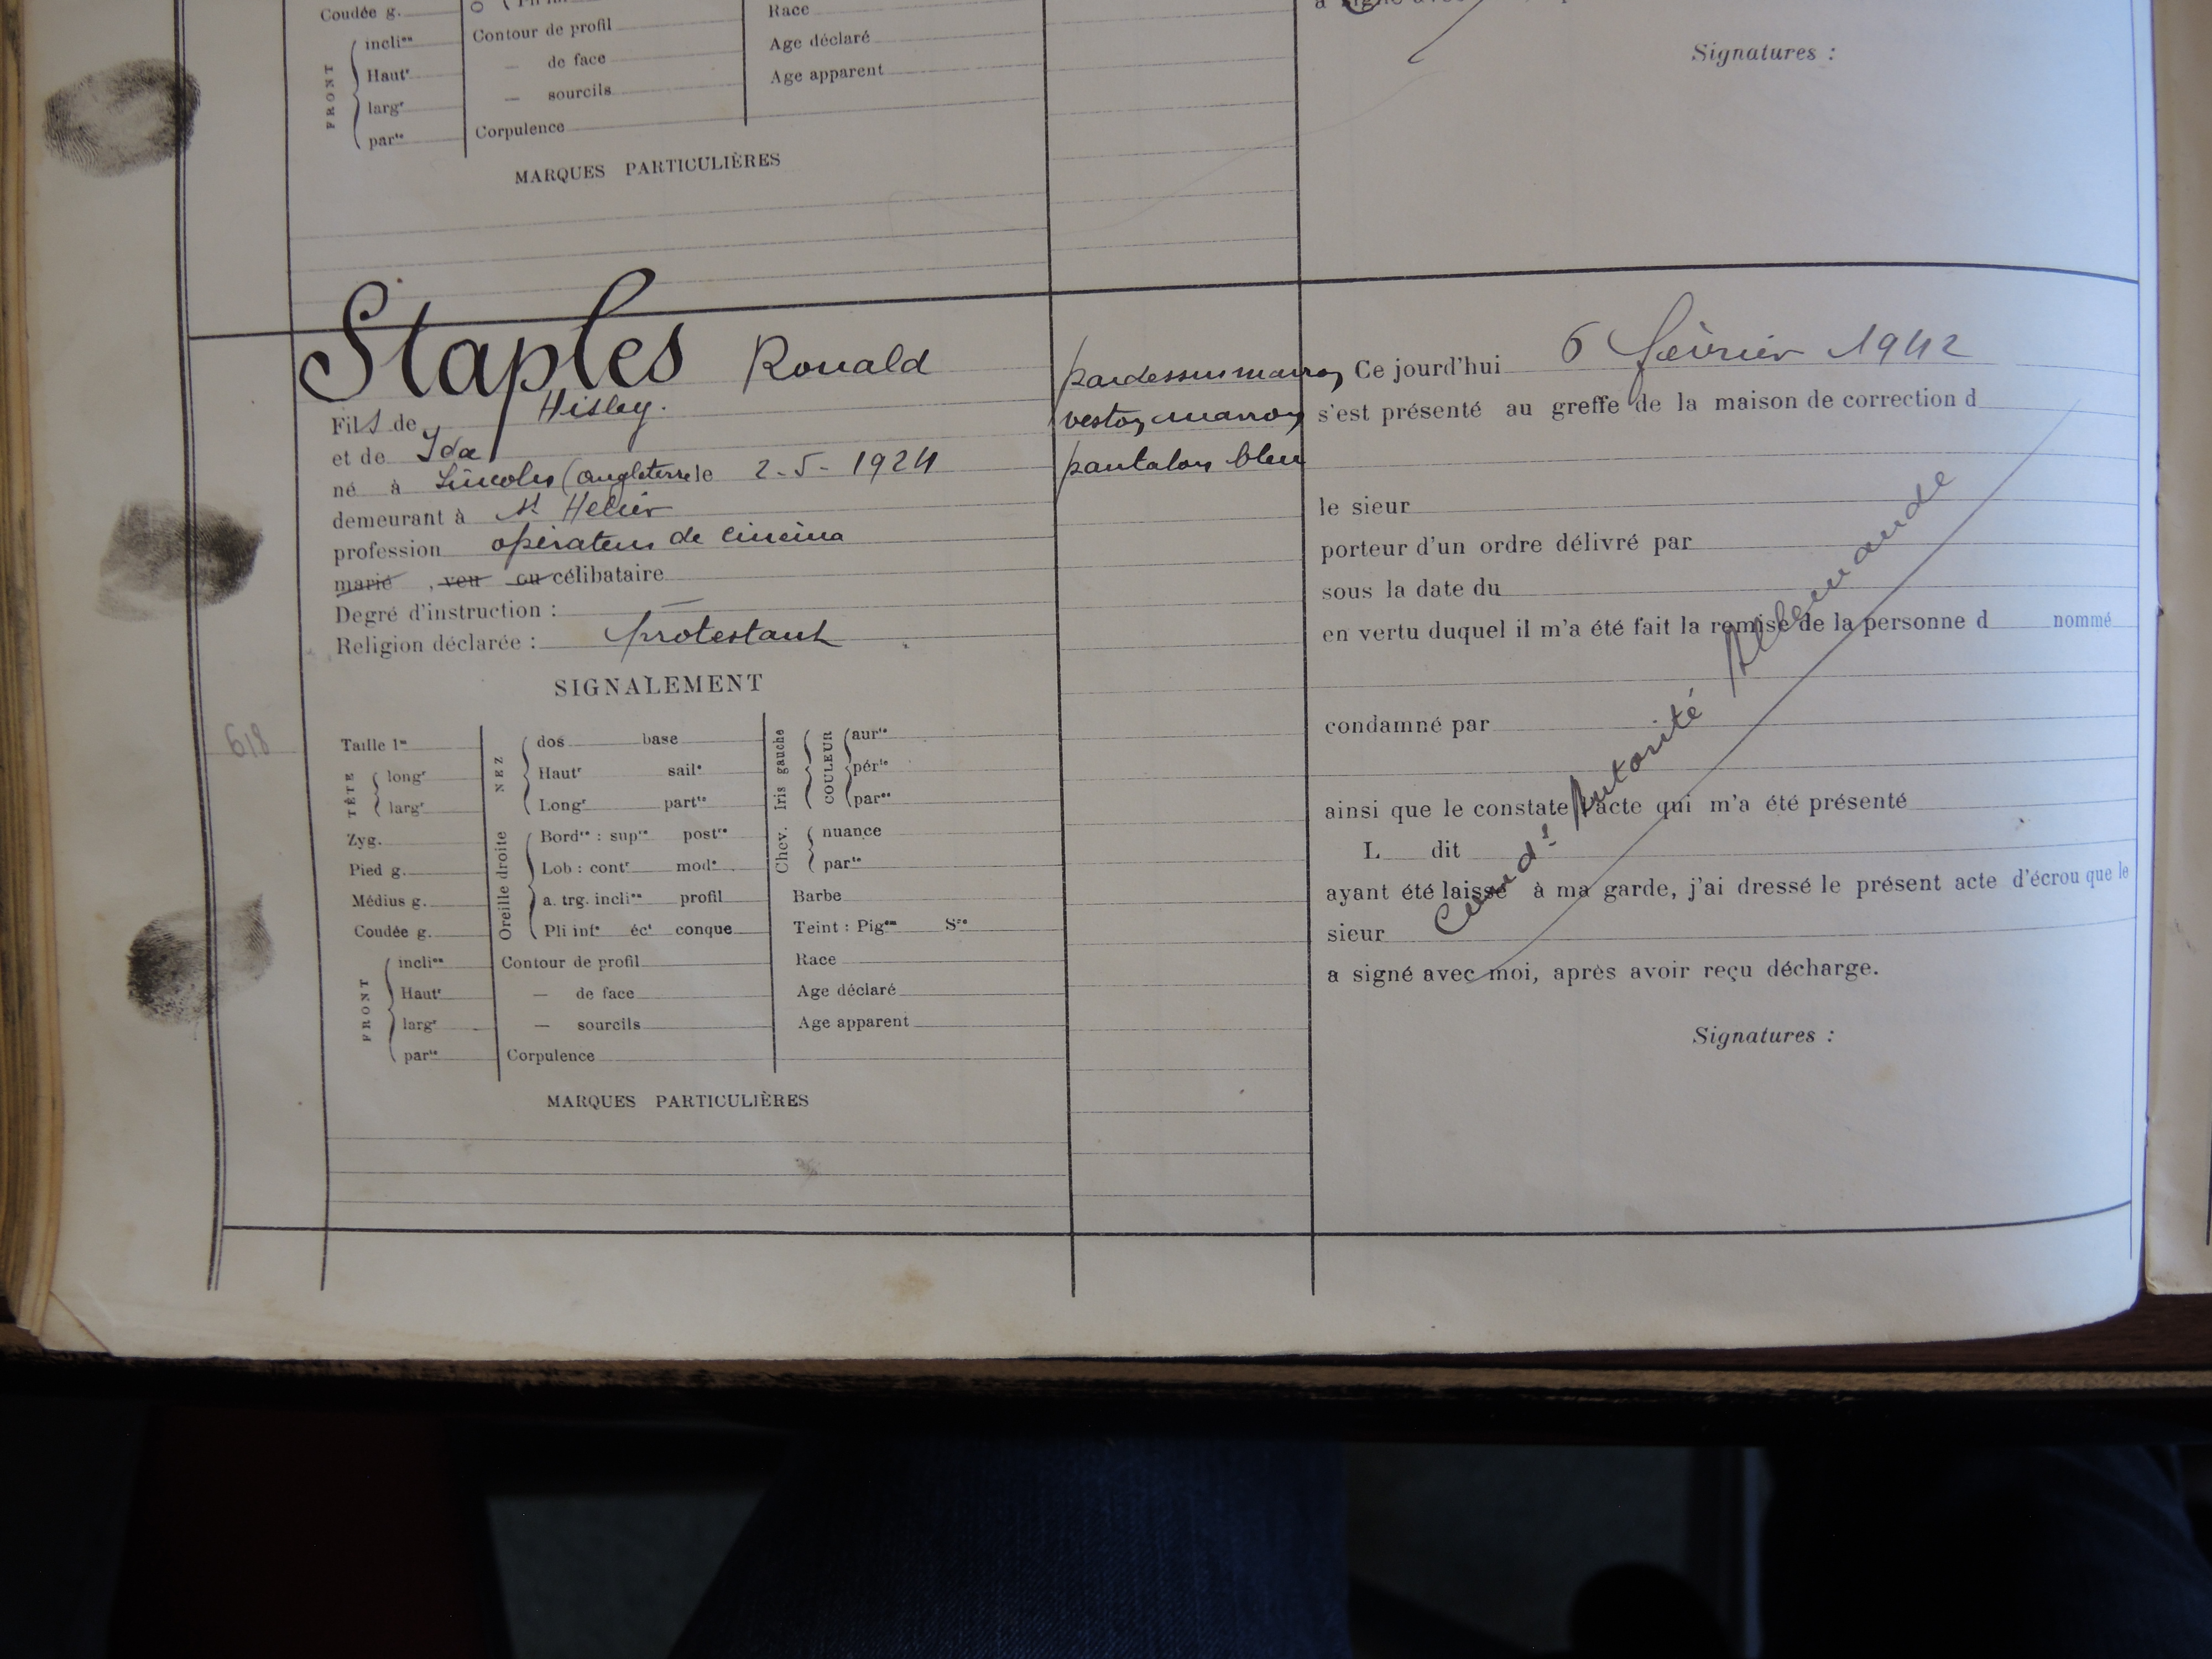 Coudée g.
FRONT
incli**on**
Haut**r**
larg**r**
par**té**
Contour de profil
— de face
— sourcils
Corpulence
Race
Age déclaré
Age apparent
MARQUES PARTICULIÈRES
Signatures :
Staples Ronald
Fils de Hisley.
et de Ida
né à Lincoln (Angleterre le 2-5-1924
demeurant à St Helier
profession opérateur de cinéma
marié , veu ou célibataire
Degré d'instruction : —
Religion déclarée : protestant
pardessus marron
veston marron
pantalon bleu
SIGNALEMENT
618
Taille 1m
TÊTE
longr
largr
Zyg.
Pied g.
Médius g.
Coudée g.
FRONT
inclion
Hautr
largr
parté
NEZ
dos base
Hautr saile
Longr parté
Oreille droite
Bordre : supre postre
Lob : contr mode
a. trg. inclion profil
Pli infr éct conque
Contour de profil
— de face
— sourcils
Corpulence
Iris gauche
COULEUR
aurle
périe
partés
Chev.
nuance
parté
Barbe
Teint : Pigon Sne
Race
Age déclaré
Age apparent
MARQUES PARTICULIÈRES
Ce jourd'hui 6 février 1942
s'est présenté au greffe de la maison de correction d
le sieur
porteur d'un ordre délivré par
sous la date du
en vertu duquel il m'a été fait la remise de la personne d nommé
condamné par
ainsi que le constate l'acte qui m'a été présenté
L dit
ayant été laissé à ma garde, j'ai dressé le présent acte d'écrou que le
sieur
a signé avec moi, après avoir reçu décharge.
Autorité Allemande
Signatures :